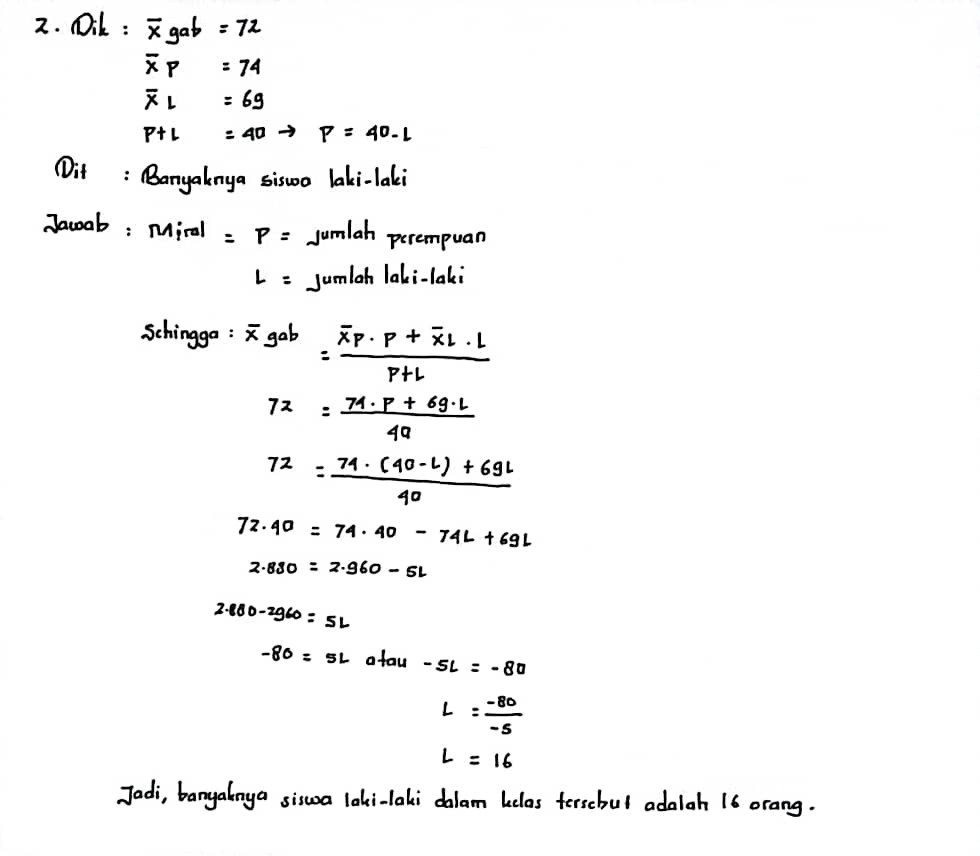 2. Dik : x̄ gab = 72
x̄ P = 74
x̄ L = 69
P+L = 40 → P = 40-L
Dit : Banyaknya siswa laki-laki
Jawab : Misal = P = Jumlah perempuan
L = Jumlah laki-laki
Sehingga : x̄ gab = x̄P . P + x̄L . L
P+L
72 = 74 . P + 69 . L
40
72 = 74 . (40-L) + 69L
40
72.40 = 74.40 - 74L + 69L
2.880 = 2.960 - 5L
2.880-2960 = 5L
-80 = 5L atau -5L = -80
L = -80
-5
L = 16
Jadi, banyaknya siswa laki-laki dalam kelas tersebut adalah 16 orang.